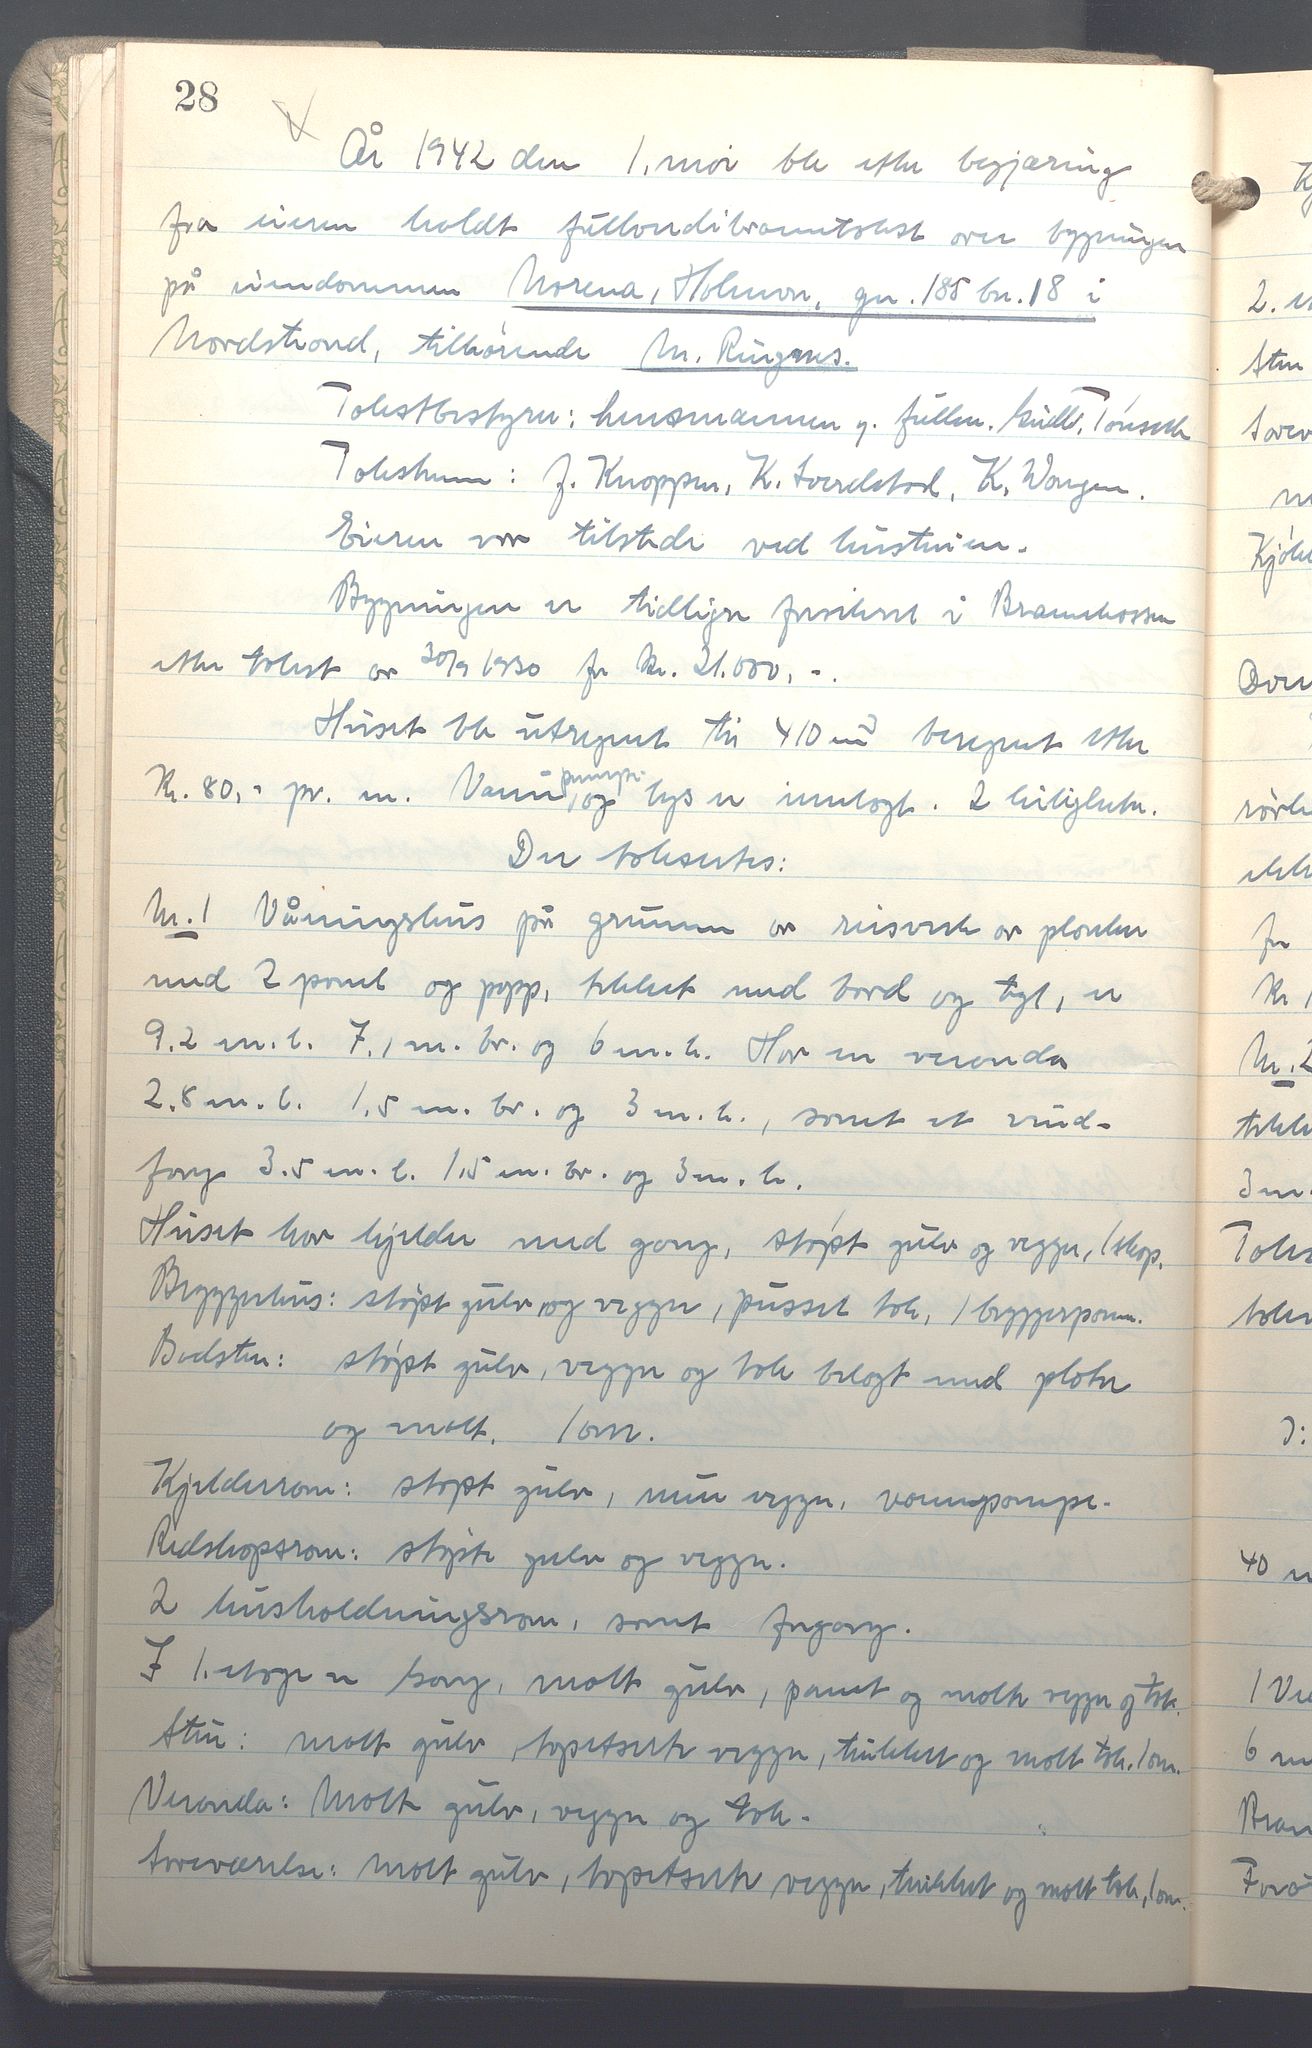 28
År 1942 den 1. mai ble etter begjæring
fra eieren holdt fullverdibranntakst over bygningen
på eiendommen Morena, Holmen, gn. 185 bn. 18 i
Nordstrand, tilhørende M. Ringnes.
Takstbestyrer: lensmannen v. fullm.
Takstmenn: J. Knoppen, K. K. Wangen.
Eieren var tilstede ved hustruen.
Bygningen er tidligere forsikret i Brannkassen
etter takst av 30/9 1930 for kr. 21.000,-.
Huset ble utregnet til 410 m³ beregnet etter
Kr. 80,- pr. m. Vannpumpe, og lys er innlagt. 2 leiligheter.
Der takseres:
Nr. 1 Våningshus på grunnmur av reisverk av planker
med 2 panel og papp, tekket med bord og tegl, er
9.2 m. l. 7.1 m. br. og 6 m. h. Har en veranda
2.8 m. l. 1.5 m. br. og 3 m. h., samt et vind-
fang 3.5 m. l. 1.5 m. br. og 3 m. h.
Huset har kjelder med gang, støpt gulv og vegger, 1 skap.
Bryggerhus: støpt gulv og vegger, pusset tak, 1 bryggerpanne.
Badstu: støpt gulv, vegger og tak belagt med plater
og malt. 1 ovn.
Kjelderrom: støpt gulv, mur vegger, vannpumpe.
Redskapsrom: støpte gulv og vegger.
2 husholdningsrom, samt forgang.
I 1. etage er Gang, malt gulv, panelt og malte vegger og tak.
Stue: malt gulv, tapetserte vegger, trukket og malt tak. 1 ovn.
Veranda: Malt gulv, vegger og tak.
Soveværelse: malt gulv, tapetserte vegger, trukket og malt tak, 1 ovn.